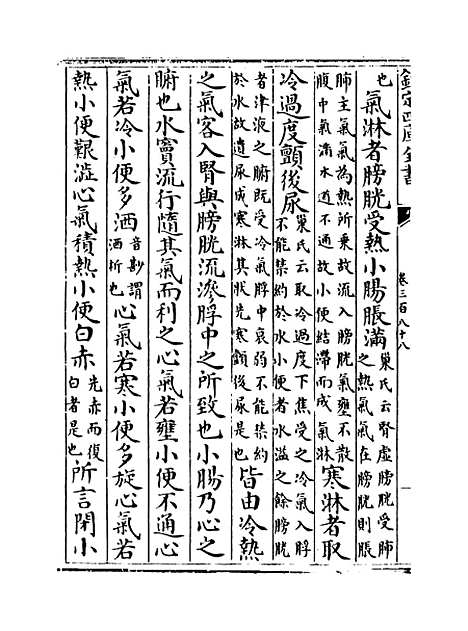 欽定四庫全書
卷三百八十八
也氣淋者膀胱受熱小腸脹滿巢氏云腎虛膀胱受肺之熱氣氣在膀胱則脹
肺主氣氣為熱所乘故流入膀胱氣壅不散腹中氣滿水道不通故小便結滯而成氣淋寒淋者取
冷過度顫後尿巢氏云取冷過度下焦受之冷氣入脬不能禁約於水小便者水溢之餘膀胱
者津液之腑既受冷氣脬中衰弱不能禁約於水故遺尿成寒淋其狀先寒顫後尿是也皆由冷熱
之氣客入腎與膀胱流滲脬中之所致也小腸乃心之
腑也水竇流行隨其氣而利之心氣若壅小便不通心
氣若冷小便多洒音尠謂洒析也心氣若寒小便多旋心氣若
熱小便艱澁心氣積熱小便白赤先赤而復白者是也所言閉小